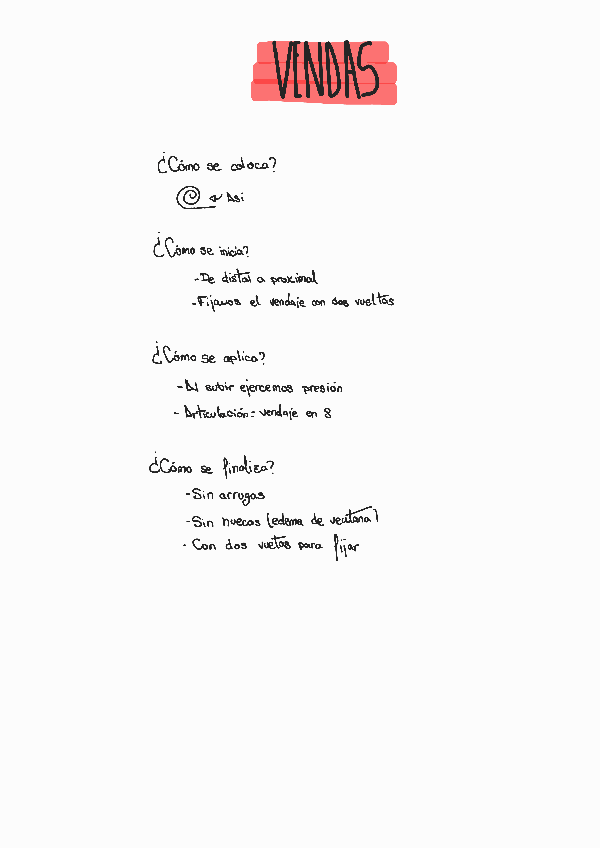 VENDAS
¿Cómo se coloca?
Así
¿Cómo se inicia?
-De distal a proximal
-Fijamos el vendaje con dos vueltas
¿Cómo se aplica?
-Al subir ejercemos presión
- Articulación: vendaje en 8
¿Cómo se finaliza?
-Sin arrugas
-Sin huecos (edema de ventana)
- Con dos vuetas para fijar